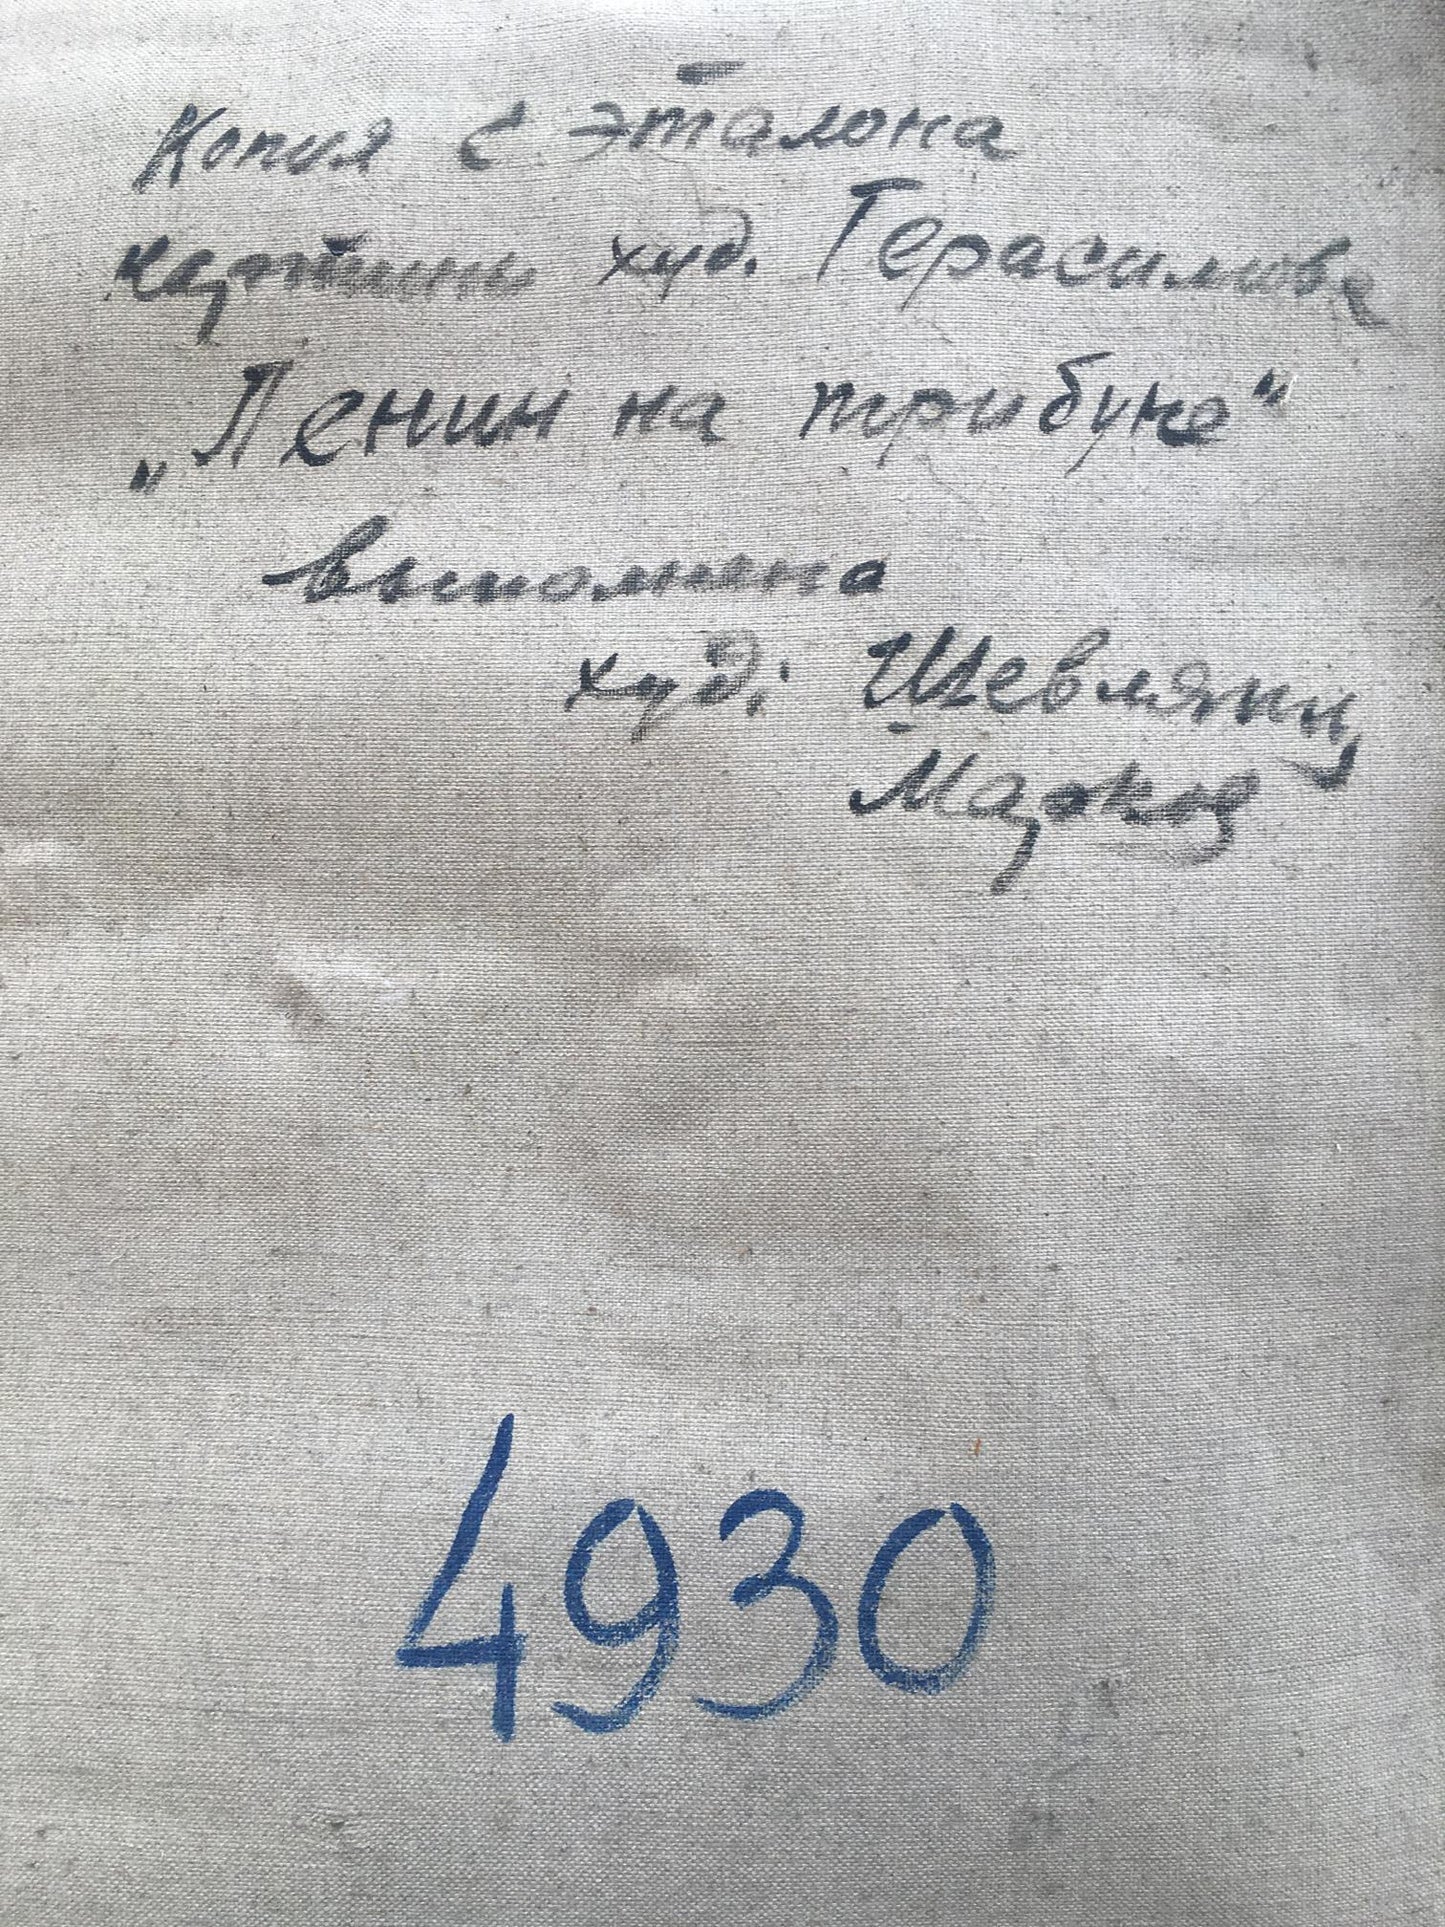 Копия с эталона
картины худ. Герасимова
„Ленин на трибуне“
выполнена
худ:
4930